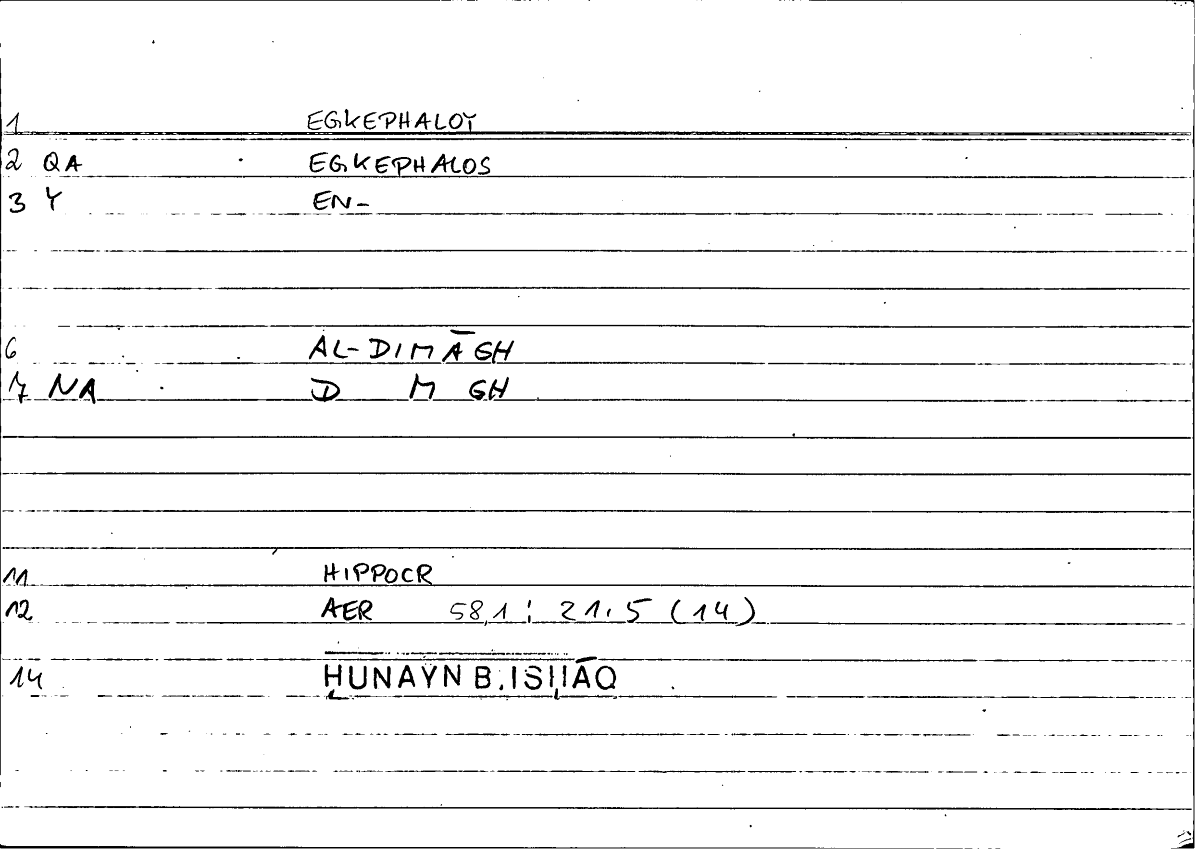 1 EGKEPHALOY
2 QA EGKEPHALOS
3 Y EN-
6 AL-DIMĀGH
7 NA D M GH
11 HIPPOCR
12 AER 58,1 ; 21.5 (14)
14 ḤUNAYN B. ISḤĀQ